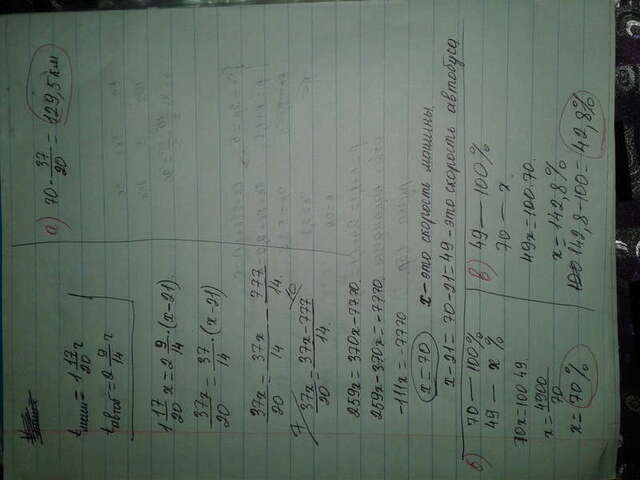 tмаш = 1 17/20 ч
tавтоб = 2 9/14 ч
1 17/20 x = 2 9/14 · (x-21)
37x/20 = 37/14 · (x-21)
37x/20 = 37x/14 - 777/14
7/ 37x/20 = 37x-777/14 /10
259x = 370x-7770
259x-370x = -7770
-111x = -7770
x = 70
x - это скорость машины
x-21 = 70-21 = 49 - это скорость автобуса
а) 70 · 37/20 = 129,5 км
б) 70 — 100%
49 — x %
70x = 100·49
x = 4900/70
x = 70%
в) 49 — 100%
70 — x
49x = 100·70
x = 142,8%
142,8-100 = 42,8%